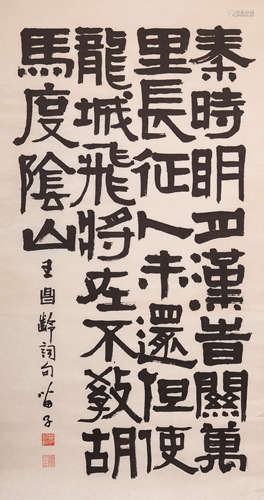 秦時明月漢旹關萬
里長征人未還但使
龍城飛將在不教胡
馬度陰山
王昌齡詞句